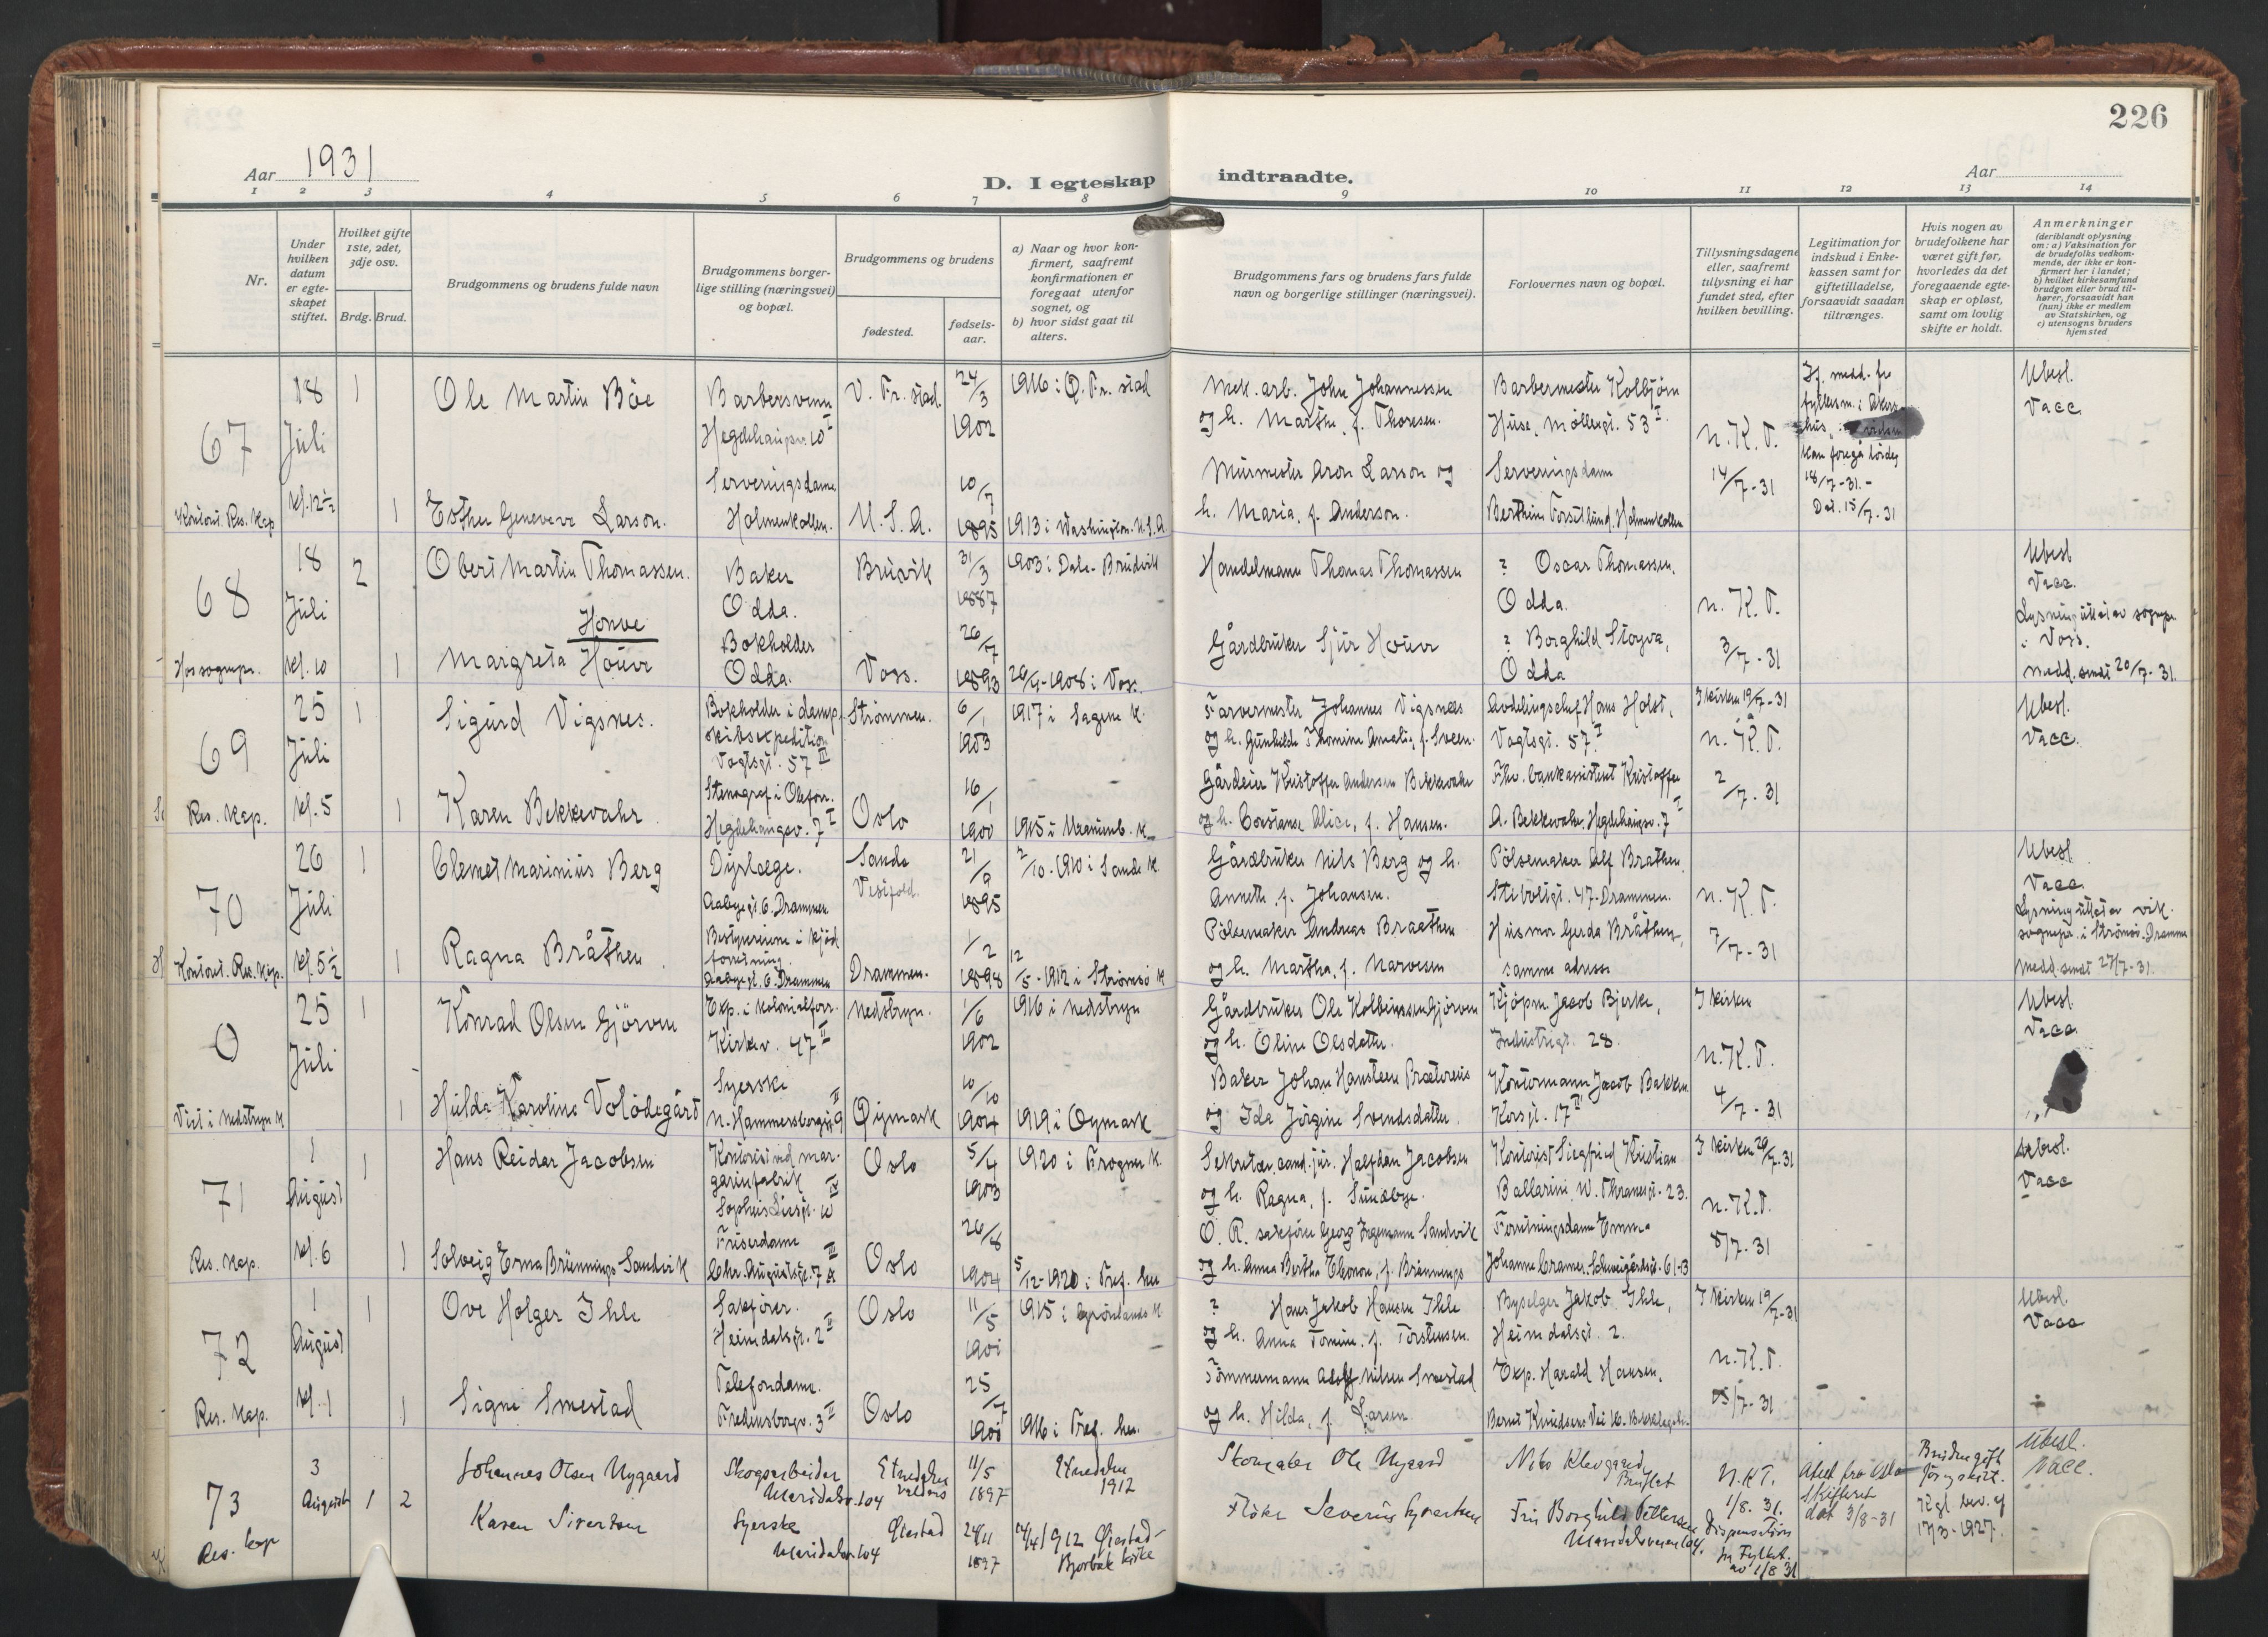 226
Aar 1931
D. I egteskap indtraadte.
Aar
1 2 3 4 5 6 7 8 9 10 11 12 13 14
Nr.
Under hvilken datum er egteskapet stiftet.
Hvilket gifte 1ste, 2det, 3dje osv.
Brdg. Brud.
Brudgommens og brudens fulde navn
Brudgommens borgerlige stilling (næringsvei) og bopæl.
Brudgommens og brudens
fødested.
fødselsaar.
a) Naar og hvor konfirmert, saafremt konfirmationen er foregaat utenfor sognet, og
b) hvor sidst gaat til alters.
Brudgommens fars og brudens fars fulde navn og borgerlige stillinger (næringsvei).
Forlovernes navn og bopæl.
Tillysningsdagene eller, saafremt tillysning ei har fundet sted, efter hvilken bevilling.
Legitimation for indskud i Enkekassen samt for giftetilladelse, forsaavidt saadan tiltrænges.
Hvis nogen av brudefolkene har været gift før, hvorledes da det foregaaende egteskap er opløst, samt om lovlig skifte er holdt.
Anmerkninger
(deriblandt oplysning om: a) Vaksination for de brudefolks vedkommende, der ikke er konfirmert her i landet; b) hvilket kirkesamfund brudgom eller brud tilhører, forsaavidt han (hun) ikke er medlem av Statskirken, og c) utensogns bruders hjemsted
67
18 Juli
kl. 12½
Kontoret. Res. Kap
1
Ole Martin Böe
Barbersvenn
Hegdehaugsv. 10 I
V. Fr. stad.
24/3 1902
1916 i Ø. Fr. stad
Mek. arb. John Johannessen
og h. Marthe, f. Thoresen.
Barbermester Kolbjörn
Huse, Möllergt. 53 I.
n. K. T.
14/7-31
Jf. medd. fra
fylkesm. i Akers-
hus,
kan foregå lördag
18/7-31.-
Dat. 15/7-31
Ubesl.
Vacc.
1
Esther Genevieve Larson.
Serveringsdame
Holmenkollen.
U.S.A.
10/7 1895
1913 i Washington. U.S.A
Murmester Aron Larson og
h. Maria, f. Anderson.
Serveringsdame
Holmenkollen
68
18 Juli
kl. 10
Hos sognepr.
2
Obert Martin Thomassen.
Baker
Odda.
Bruvik
31/3 1887
1903 i Dale-Brudvik
Handelsmann Thomas Thomassen
? Oscar Thomassen.
Odda.
n. K. T.
3/7-31
Ubesl
Vacc.
Lysning uttatt av sognepr.
i Voss.
Medd. sendt 20/7-31.
1
Honve
Margreta Houve
Bokholder
Odda.
Voss.
26/7 1893
1908 i Voss.
Gårdbruker Sjur Houve
? Borghild Storva,
Odda
69
25 Juli
kl. 5
Res. Kap.
1
Sigurd Vigsnes.
Bokholder i damp-
skibsexpedition
Vogtsgt. 57 III
Strømmen.
6/1 1903
1917 i Sagene K.
Farvermester Johannes Vigsnæs
og h. Gunhilda Thomine Amalie, f. Sveen.
Avdelingschef Hans Holst,
Vogtsgt. 57 I
I kirken 19/7-31
n. K. T.
2/7-31
Ubesl.
Vacc.
1
Karen Bekkevahr
Stenograf i Oljeforr.
Hegdehaugsv. 7 I
Oslo
16/1 1900
1915 i Uranienb. K.
Gårdeier Kristoffer Andersen Bekkevahr
og h. Constanse Alice, f. Hansen.
Fhv. bankassistent Kristoffer
A. Bekkevahr, Hegdehaugsv. 7 I
70
26 Juli
kl. 5½
Kontoret. Res. Kap.
1
Clemet Marinius Berg
Dyrlæge.
Aabygt. 6. Drammen
Sande
Vestfold.
21/9 1895
2/10-1910 i Sande K.
Gårdbruker Nils Berg og h.
Annette, f. Johansen.
Pölsemaker Alf Bråthen,
47-Drammen.
n. K. T.
7/7-31
Ubesl.
Vacc.
Lysning uttatt av vik.
sognepr. i Strömsö. Drammen
Medd. sendt 27/7-31.
1
Ragna Bråthen.
Bestyrerinne i kjød-
forretning.
Aabygt. 6. Drammen
Drammen.
1/2 1898
12/5-1912 i Strömsö K
Pölsemaker Andreas Braathen
og h. Martha, f. Narvesen
Husmor Gerda Bråthen,
samme adresse
0
25 Juli
Viet i Nedstryn K
1
Konrad Olsen Gjörven
Exp. i kolonialforr.
Kirkev. 47 II
Nedstryn.
1/6 1902
1916 i Nedstryn
Gårdbruker Ole Kolbeinssen Gjörven
og h. Oline Olsdatter.
Kjöpm. Jacob Bjerke,
Industrigt. 28.
I kirken
n. K. T.
4/7-31
Ubesl.
Vacc.
1
Hulda Karoline Volödegård
Syerske
N. Hammersborggt. 9 II
Öymark
10/10 1904
1919 i Öymark
Baker Johan Hansteen Prætorius
og Ida Jörgine Svendsdatter.
Kontormann Jacob Bakken
Korsgt. 17 II
71
1 August
kl. 6
Res. Kap.
1
Hans Reidar Jacobsen
Kontorist ved mar-
garinfabrik
Sophus Liesgt. 10 IV
Oslo
5/4 1903
1920 i Frogner K.
Sekretær, cand. jur. Halfdan Jacobsen
og h. Ragna, f. Sundbye.
Kontorist Siegfried Kristian
Ballarini, W. Thranesgt. 23.
I kirken 26/7-31
n. K. T.
8/7-31
Ubesl.
Vacc
1
Solveig Erna Brünnings Sandvik
Friserdame
Chr. Augustsgt. 7 III
Oslo
26/8 1904
5/12-1920 i Tref. her
O. R. sakfører Georg Ingemann Sandvik
og h. Anna Bertha Eleonore, f. Brünnings
Forretningsdame Emma
Johanne Cramer, Schweigårdsgt. 61-B
72
1 August
kl. 1
Res. Kap.
1
Ove Holger Ihle
Sakfører.
Heimdalsgt. 2 II
Oslo
11/5 1901
1915 i Grönlands K.
? Hans Jakob Hansen Ihle
og h. Anna Tomine, f. Torstensen.
Byselger Jakob Ihle,
Heimdalsgt. 2.
I kirken 19/7-31
n. K. T.
/7-31
Ubesl.
Vacc
1
Signe Smestad
Telefondame.
Fredensborgv. 3 II
Oslo
25/7 1900
1916 i Tref. her.
Tömmermann Adolf Nilsen Smestad
og h. Hilda, f. Larsen.
Exp. Harald Hansen,
Bernt Knudsens Vei 16.
73
3 August
Res. kap
1 2
Johannes Olsen Nygaard
Skogsarbeider
Maridalsv. 104
Etnedalen
Valdres
11/5 1897
Etnedalen
1912
Skomaker Ole Nygaard
Nils Klevgaard
Bruflat
N.K.T.
1/8. 31.
Dispensation
fra Fylket.
av 1/8 31
Attest fra Oslo
Skifteret
dat 3/8-31
Bruden gift
før, skilt.
Kgl. bev. af
17/3-1927.
Ubesl.
Vacc.
Karen Sivertsen
Syerske
Maridalsv. 104
Øiestad
24/11 1897
1912 Øiestad-
Bjorbæk kirke
Fløter Severin Syvertsen
Frü Borghild Pettersen
Maridalsveien 104.